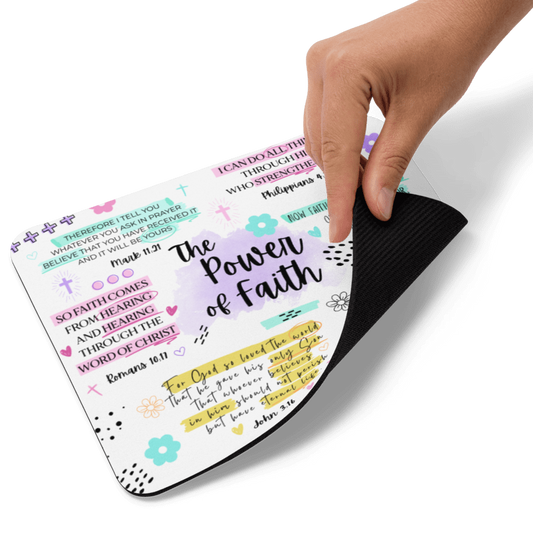 I CAN DO ALL
THROUGH
WHO STRENGTHE
Philippians 4
THEREFORE I TELL YOU
WHATEVER YOU ASK IN PRAYER
BELIEVE THAT YOU HAVE RECEIVED IT
AND IT WILL BE YOURS
Mark 11.21
NOW FAITH
The
Power
of Faith
SO FAITH COMES
FROM HEARING
AND HEARING
THROUGH THE
WORD OF CHRIST
Romans 10.17
For God so loved the world
that he gave his only Son
that whoever believes
in him should not perish
but have eternal life
John 3.16